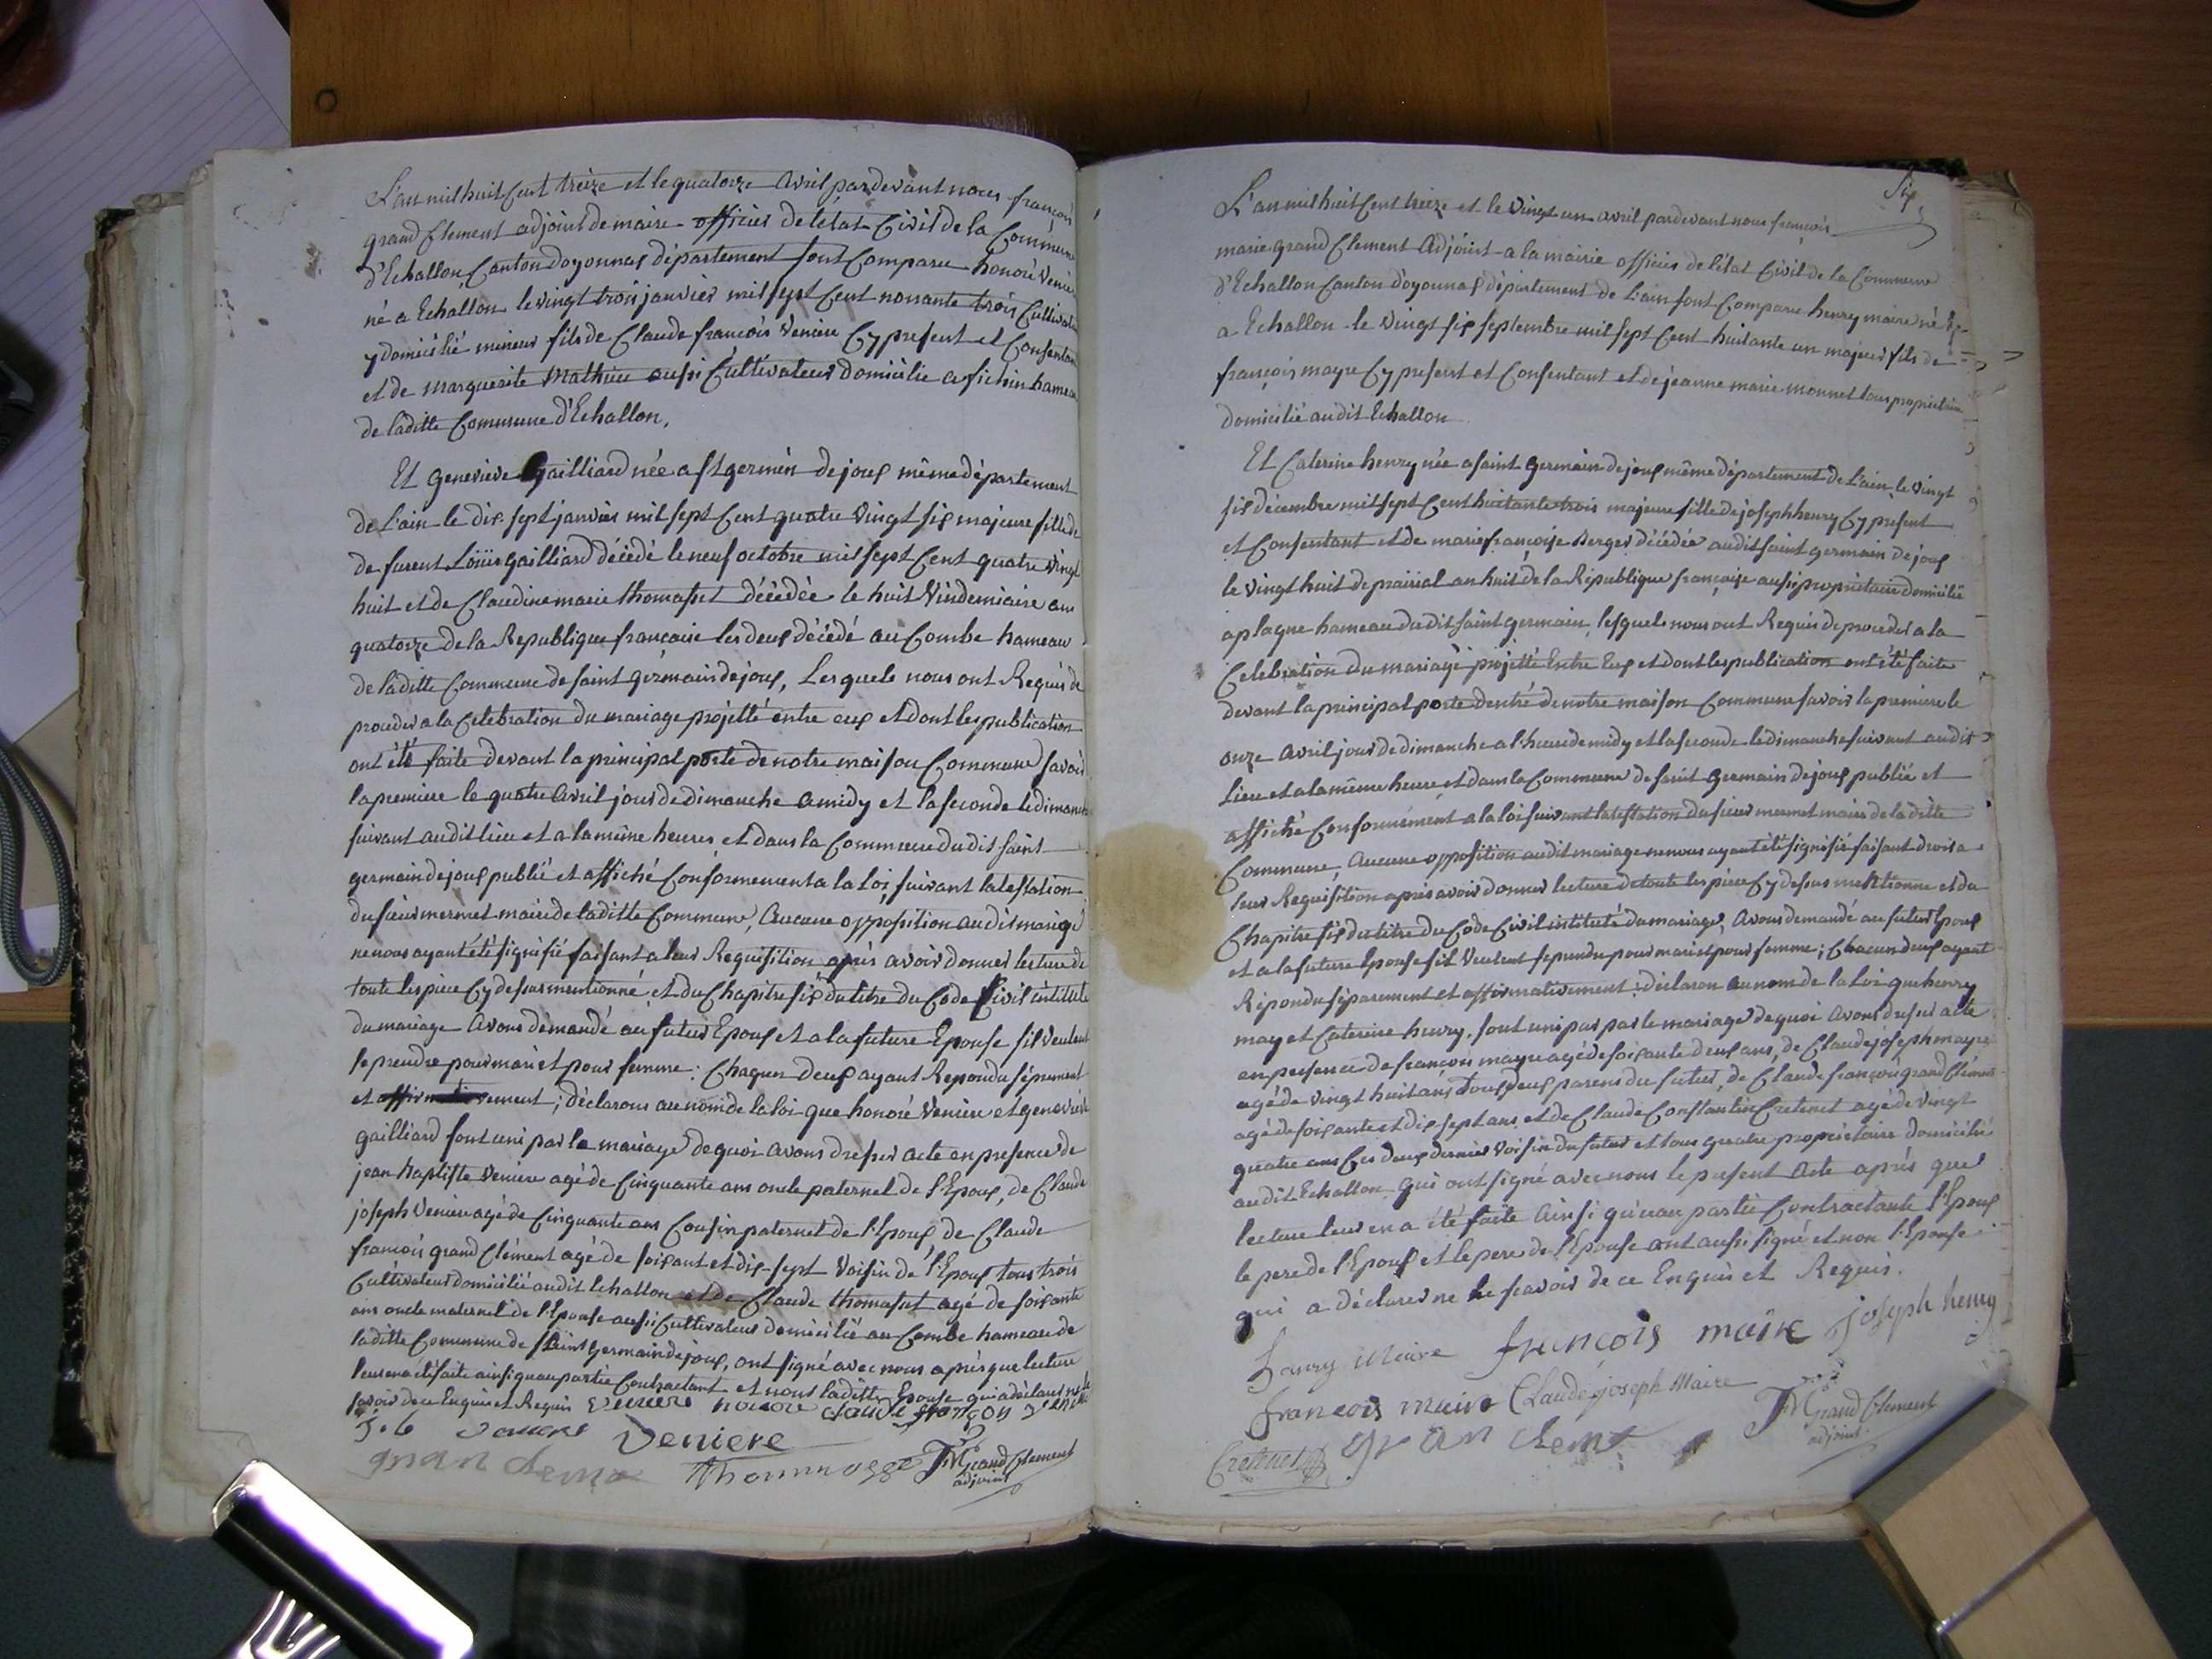 L'an mil huit Cent treize et le quatorze avril pardevant nous françois
grand Clement adjoint de maire officier de l'état Civil de la Commune
d'Echallon Canton doyonnas département sont Comparu honoré Veniere
né a Echallon le vingt trois janvier mil sept Cent nonante trois Cultivateur
y domicilié mineur fils de Claude françois Veniere Cy present et Consentant
et de marguerite Mathieu aussi Cultivateur domicilie a fichin hameau
de laditte Commune d'Echallon,
Et geneviève gailliard née a st germin de joux même département
de L'ain le dix sept janvier mil sept Cent quatre vingt six majeure fille de
de furent Loüis gailliard décédé le neuf octobre mil sept Cent quatre vingt
huit et de Claudine marie thomasset décédée le huit Vindemiaire an
quatorze de la Republique française les deux décédé au Combe hameau
de laditte Commune de saint germain de joux, Lesquels nous ont Requis de
proceder a la Celebration du mariage projetté entre eux et dont les publication
ont été faite devant la principal porte de notre maison Commune savoir
la premiere le quatre avril jour de dimanche a midy et la seconde le dimanche
suivant audit lieu et a la même heures et dans la Commune dudit saint
germain de joux publié et affiché Conformement a la Loi, suivant latestation
du sieur mermet maire de laditte Commune, Aucune opposition audit mariage
ne nous ayant été signifié faisant a leur Requisition après avoir donner lecture de
toute les piece Cy dessus mentionné et du Chapitre six du titre du Code Civil intitulé
du mariage Avons demandé au futur Epoux et a la future Epouse s'il veulent
se prendre pour mari et pour femme : Chaqun deux ayant Repondu séprement
et affirmativement ; déclarons au nom de la loi que honoré Veniere et genevieve
gailliard sont uni par le mariage de quoi avons dresser acte en presence de
jean baptiste Veniere agé de Cinquante ans oncle paternel de l'Epoux, de Claude
joseph Veniere agé de Cinquante ans Cousin paternel de l'Epoux, de Claude
francois grand Clément agé de soixant et dix-sept Voisin de l'Epoux tous trois
Cultivateur domicilié audit Echallon et de Claude thomaset agé de soixante
ans oncle maternel de l'Epouse aussi Cultivateur domicilié au Combe hameau de
laditte Commune de saint germain de joux, ont signé avec nous après que lecture
leur en a été faite ainsi qu'au partie Contractant et nous laditte Epouse qui a déclaré ne le
savoir de ce Enquis et Requis Veniere honore Claude françoy
j. b Veniere Veniere
gran clema Thommasset FM Grand Clement
adjoint
Six
L'an mil huit Cent treize et le vingt un avril pardevant nous françois
marie grand Clement Adjoint a la mairie officier de l'état Civil de la Commune
d'Echallon Canton d'oyonnax département de L'ain sont Comparu henry maire né
a Echallon le vingt six septembre mil sept Cent huitante un majeur fils de
françois mayre Cy present et Consentant et de jeanne marie monnet tous propriétaire
domicilié audit Echallon
Et Caterine henry née a saint germain de joux même département de L'ain, le vingt
six décembre mil sept Cent huitante trois majeure fille de joseph henry Cy present
et Consentant et de marie françoise Berger décédée audit saint germain de joux
le vingt huit de prairial an huit de la République française aussi propriétaire domicilié
a plagne hameau dudit saint germain, lesquels nous ont Requis de proceder a la
Celebration du mariage projetté Entre Eux et dont les publication ont été faite
devant la principal porte dentré de notre maison Commune savoir la premiere le
onze avril jour de dimanche a l'heure de midy et la seconde le dimanche suivant audit
Lieu et a la même heure et dans la Commune de saint germain de joux publié et
affiché Conformément a la loi suivant latestation du sieur mermet maire de laditte
Commune, Aucune opposition audit mariage ne nous ayant été signifié faisant droit a
leur Requisition après avoir donner lecture de toute les piece Cy dessus mentionne et du
Chapitre six du titre du Code Civil intitulé du mariage, Avons demandé au futur Epoux
et a la future Epouse s'il Veulent se prendre pour mari et pour femme ; Chacun deux ayant
Répondu séparement et affirmativement : déclaron au nom de la Loi que henry
may et Caterine henry, sont uni par par le mariage de quoi Avons dresser acte
en presence de françois mayre agé de soixante deux ans, de Claude joseph mayre
agé de vingt huit ans, tous deux parens du futur, de Claude françois grand Clément
agé de soixante et dix sept ans et de Claude Constantin Cretenet agé de vingt
quatre ans Ces deux dernier voisin du futur et tous quatre proprietaire domicilié
audit Echallon qui ont signé avec nous le present acte après que
lecture leur en a été faite Ainsi qu'au partie Contractante l'Epoux
le pere de l'Epoux et le pere de l'Epouse ont aussi signé et non l'Epouse
qui a déclarer ne le scavoir de ce Enquis et Requis.
henry Maire françois maire joseph henry
francois maire Claude joseph Maire
FM Grand Clement
adjoint
Cretenet gran clema